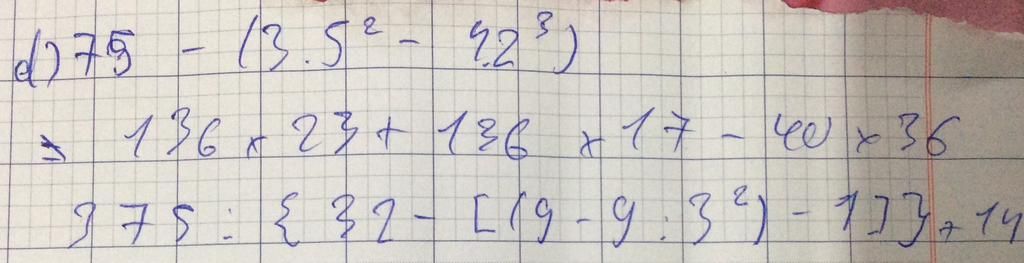 d) 75 - (3.5² - 4.2³)
136 x 23 + 136 x 17 - 40 x 36
375 : { 32 - [ (9 - 9 : 3²) - 1 ] } + 14